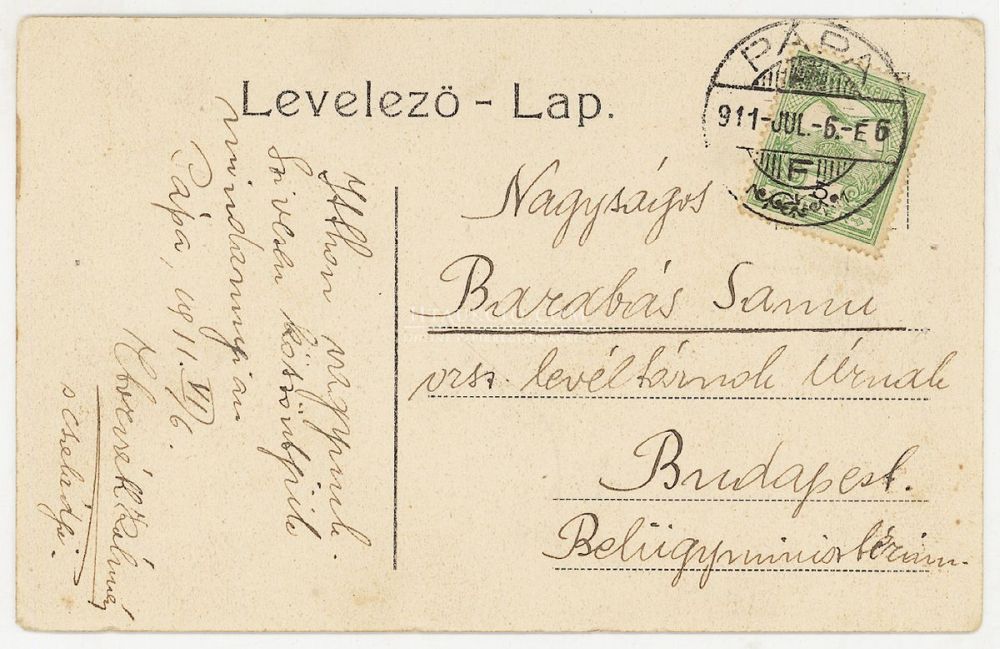 Levelező - Lap.
PÁPA
911-JUL.-6.-E6
F
Itthon vagyunk.
Szívesen köszöntjük
mindannyian
Pápa, 1911. VII/6.
Kálmán
s családja.
Nagyságos
Barabás Samu
orsz. levéltárnok Úrnak
Budapest.
Belügyministérium.